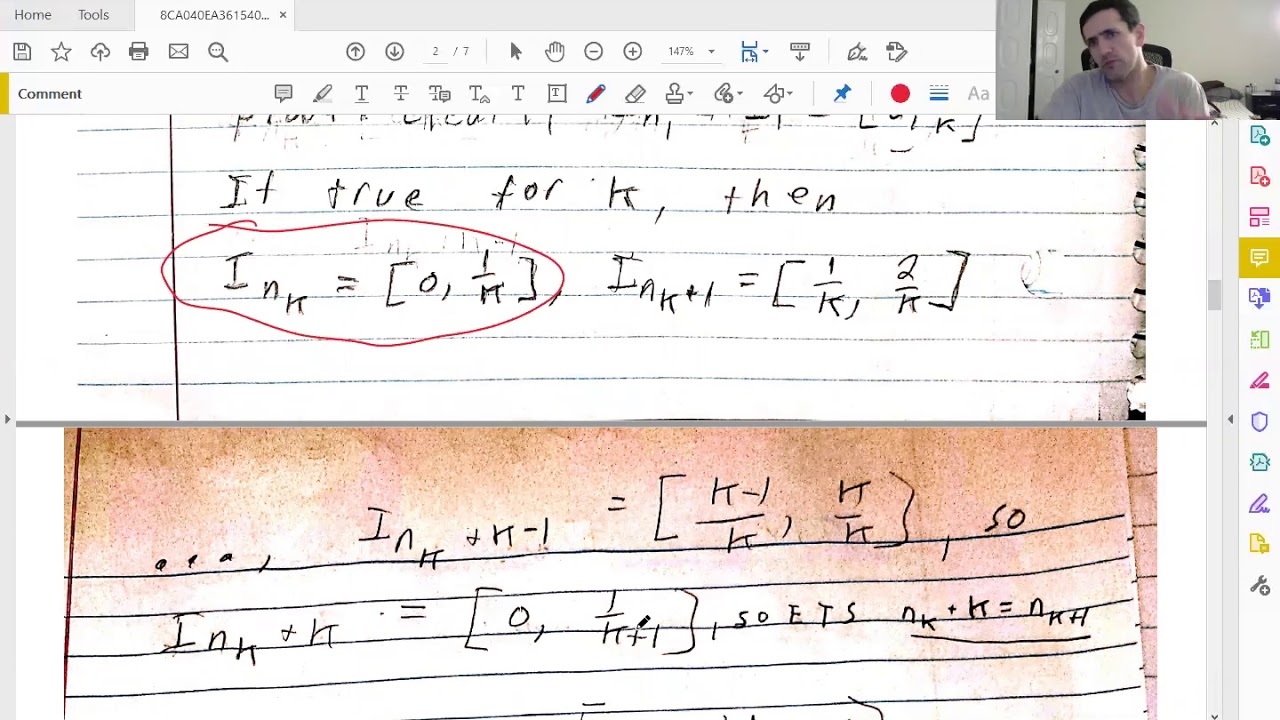 Home Tools 8CA040EA361540... ×
2 / 7 147%
Comment Aa
If true for K, then
I_{n_K} = [0, 1/K], I_{n_K+1} = [1/K, 2/K]
..., I_{n_K+K-1} = [K-1/K, K/K], so
I_{n_K+K} = [0, 1/K+1], so ETS n_K + K = n_{K+1}